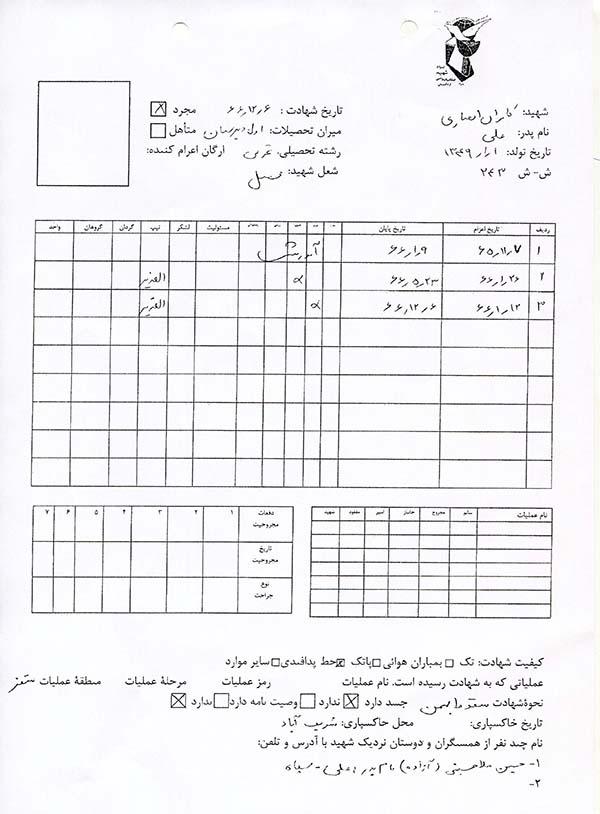 شهید: کامران انصاری
نام پدر: علی
تاریخ تولد: ۱۳۴۹
ش- ش ۲۴۳
تاریخ شهادت : ۶۶,۱۲,۶ مجرد
میران تحصیلات: اول دبیرستان متأهل
رشته تحصیلی: ارگان اعزام کننده:
شغل شهید: محصل
ردیف تاریخ اعزام تاریخ پایان مسئولیت لشگر تیپ گردان گروهان واحد
۱ ۶۵,۱۱,۷ ۶۶,۱,۹ آموزشی
۲ ۶۶,۱,۲۶ ۶۶,۵,۲۳ α الغدیر
۳ ۶۶,۱۲,۶ α الغدیر
نام عملیات سالم مجروح جانباز اسیر مفقود شهید
دفعات مجروحیت ۱ ۲ ۳ ۴ ۵ ۶ ۷
تاریخ مجروحیت
نوع جراحت
کیفیت شهادت: تک بمباران هوائی پاتک خط پدافندی سایر موارد
عملیاتی که به شهادت رسیده است. نام عملیات رمز عملیات مرحلهٔ عملیات منطقهٔ عملیات سقز
نحوهٔ شهادت سقوط بهمن جسد دارد ندارد وصیت نامه دارد ندارد
تاریخ خاکسپاری: محل خاکسپاری: شریف آباد
نام چند نفر از همسنگران و دوستان نزدیک شهید با آدرس و تلفن:
۱- حسین ملاحسینی (آزاده) نام پدر: علی - سپاه
۲-